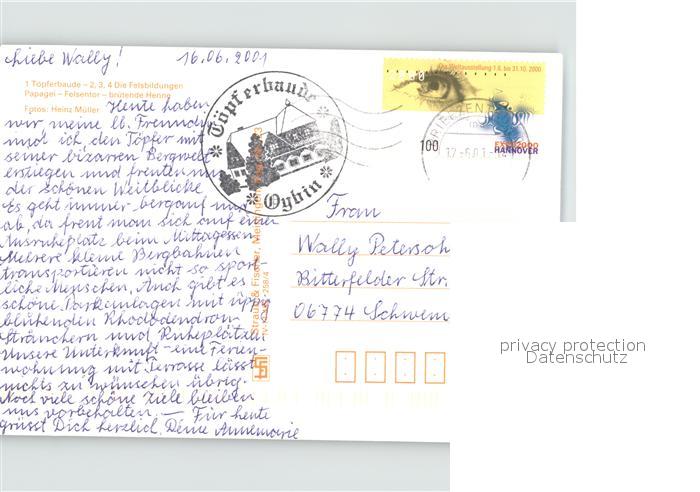 Liebe Wally! 16.06.2001
1 Töpferbaude – 2, 3, 4 Die Felsbildungen
Papagei – Felsentor – brütende Henne
Fotos: Heinz Müller
Heute haben
wir, meine lb. Freundin
und ich den Töpfer mit
seiner bizarren Bergwelt
erstiegen und freuten uns
der schönen Weitblicke.
Es geht immer bergauf und
ab, da freut man sich auf einen
Ausruheplatz beim Mittagessen.
Mehrere kleine Bergbahnen
transportieren nicht so sport-
liche Menschen. Auch gibt es
schöne Parkanlagen mit üppig
blühenden Rhododendron-
sträuchern und Ruheplätzen.
Unsere Unterkunft - eine Ferien-
wohnung mit Terrasse lässt
nichts zu wünschen übrig.
Noch viele schöne Ziele bleiben
uns vorbehalten. — Für heute
grüsst Dich herzlich Deine Annemarie
* Töpferbaude *
* Oybin *
Die Weltausstellung 1.6. bis 31.10. 2000
100
EXPO2000
HANNOVER
BRIEFZENTRUM
Straub & Fischer, Meiningen
Frau
Wally Petersoh
Bitterfelder Str.
06774 Schwem
privacy protection
Datenschutz